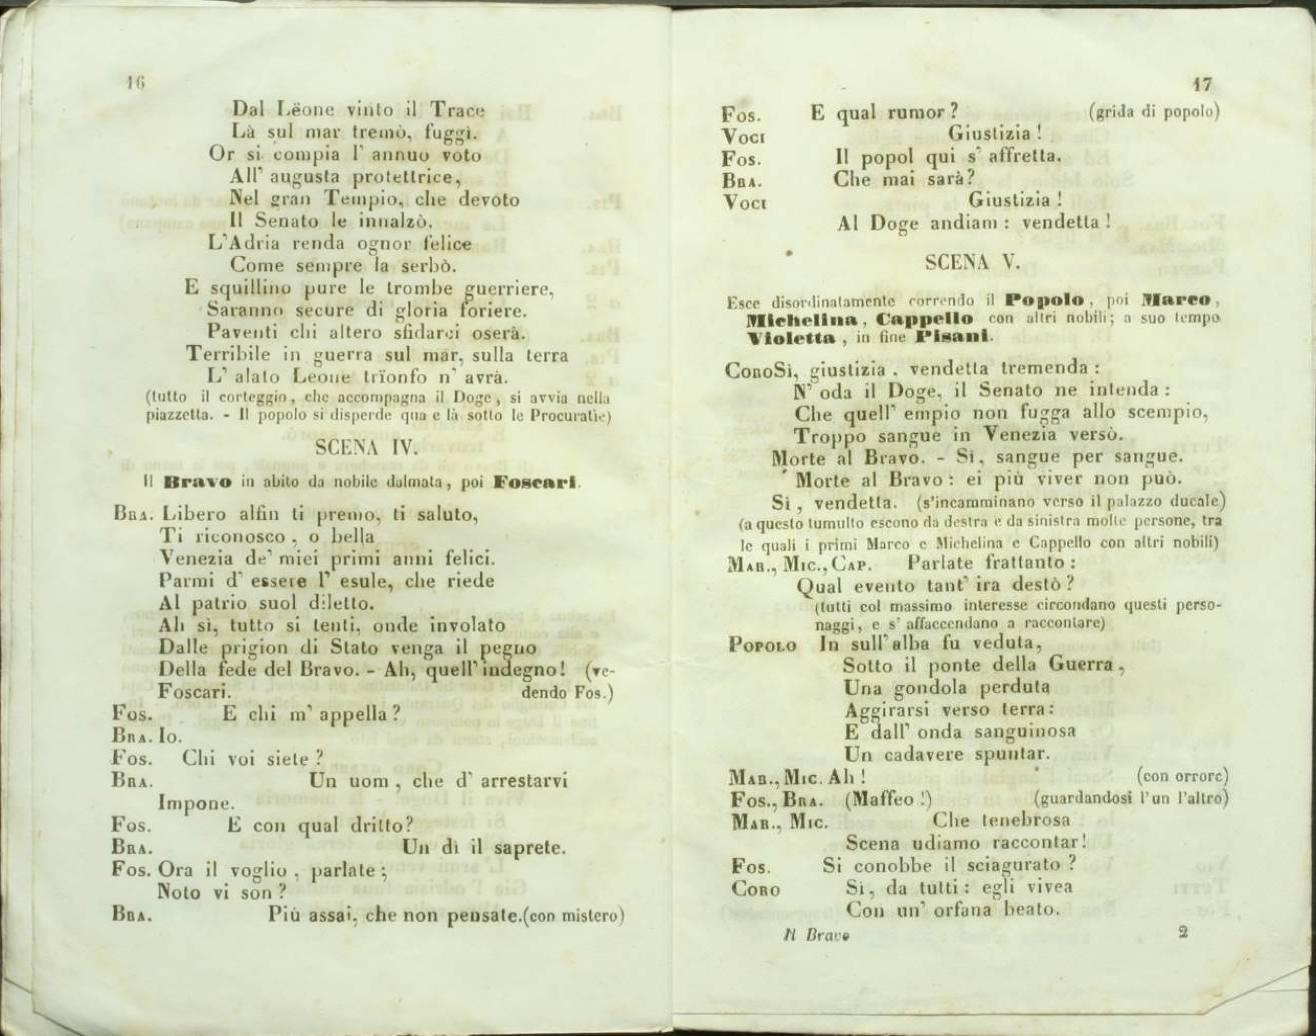 16
Dal Lëone vinto il Trace
Là sul mar tremò, fuggì.
Or si compia l' annuo voto
All' augusta protettrice,
Nel gran Tempio, che devoto
Il Senato le innalzò.
L'Adria renda ognor felice
Come sempre la serbò.
E squillino pure le trombe guerriere,
Saranno secure di gloria foriere.
Paventi chi altero sfidarci oserà.
Terribile in guerra sul mar, sulla terra
L' alato Leone trïonfo n' avrà.
(tutto il corteggio, che accompagna il Doge, si avvia nella
piazzetta. - Il popolo si disperde qua e là sotto le Procuratìe)
SCENA IV.
Il Bravo in abito da nobile dalmata, poi Foscari.
BRA. Libero alfin ti premo, ti saluto,
Ti riconosco, o bella
Venezia de' miei primi anni felici.
Parmi d' essere l' esule, che riede
Al patrio suol diletto.
Ah sì, tutto si tenti, onde involato
Dalle prigion di Stato venga il pegno
Della fede del Bravo. - Ah, quell' indegno! (ve-
Foscari. dendo Fos.)
FOS. E chi m' appella?
BRA. Io.
FOS. Chi voi siete?
BRA. Un uom, che d' arrestarvi
Impone.
FOS. E con qual dritto?
BRA. Un dì il saprete.
FOS. Ora il voglio, parlate;
Noto vi son?
BRA. Più assai, che non pensate.(con mistero)
17
FOS. E qual rumor? (grida di popolo)
VOCI Giustizia!
FOS. Il popol qui s' affretta.
BRA. Che mai sarà?
VOCI Giustizia!
Al Doge andiam: vendetta!
SCENA V.
Esce disordinatamente correndo il Popolo, poi Marco,
Michelina, Cappello con altri nobili; a suo tempo
Violetta, in fine Pisani.
CORO Sì, giustizia, vendetta tremenda:
N' oda il Doge, il Senato ne intenda:
Che quell' empio non fugga allo scempio,
Troppo sangue in Venezia versò.
Morte al Bravo. - Sì, sangue per sangue.
Morte al Bravo: ei più viver non può.
Sì, vendetta. (s'incamminano verso il palazzo ducale)
(a questo tumulto escono da destra e da sinistra molte persone, tra
le quali i primi Marco e Michelina e Cappello con altri nobili)
MAR., MIC., CAP. Parlate frattanto:
Qual evento tant' ira destò?
(tutti col massimo interesse circondano questi perso-
naggi, e s' affaccendano a raccontare)
POPOLO In sull' alba fu veduta,
Sotto il ponte della Guerra,
Una gondola perduta
Aggirarsi verso terra:
E dall' onda sanguinosa
Un cadavere spuntar.
MAR., MIC. Ah! (con orrore)
FOS., BRA. (Maffeo!) (guardandosi l'un l'altro)
MAR., MIC. Che tenebrosa
Scena udiamo raccontar!
FOS. Si conobbe il sciagurato?
CORO Sì, da tutti: egli vivea
Con un' orfana beato.
Il Bravo 2